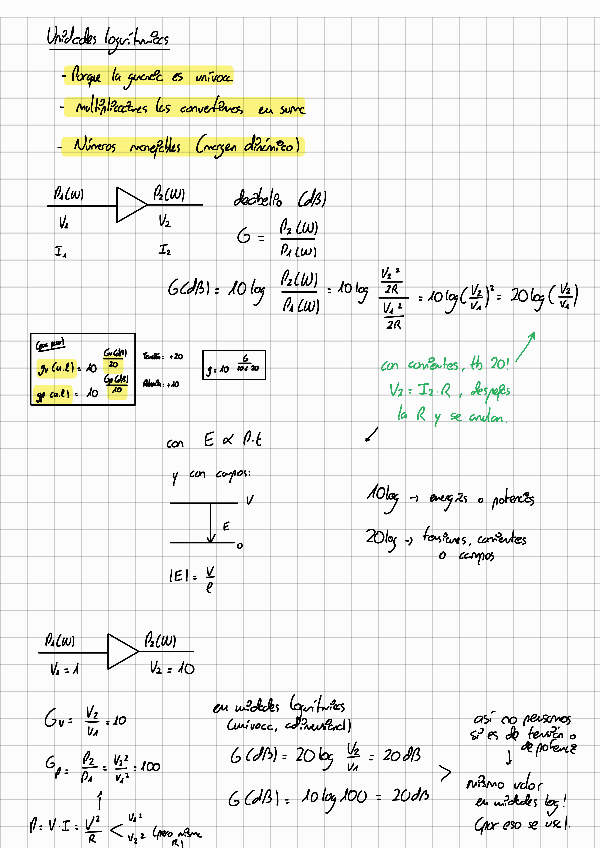 Unidades logarítmicas
- Porque la ganancia es unívoca
- multiplicaciones las convertimos en suma
- Números manejables (margen dinámico)
P₁(W) P₂(W)
V₁ V₂
I₁ I₂
decibelio (dB)
G = P₂(W) / P₁(W)
G(dB) = 10 log P₂(W) / P₁(W) = 10 log (V₂² / 2R) / (V₁² / 2R) = 10 log (V₂/V₁)² = 20 log (V₂/V₁)
gv (u.l) = 10^(Gv(dB)/20)
gp (u.l) = 10^(Gp(dB)/10)
Tensión: ÷20
Potencia: ÷10
g = 10^(G / 10 ó 20)
con corrientes, tb 20!
V₂ = I₂·R, despejas
la R y se anulan.
con E ∝ P·t
y con campos:
V
E
0
|E| = V/ℓ
10log → energías o potencias
20log → tensiones, corrientes
o campos
P₁(W) P₂(W)
V₁ = 1 V₂ = 10
Gv = V₂/V₁ = 10
Gp = P₂/P₁ = V₂²/V₁² = 100
P = V·I = V²/R < V₁² V₂² (pero misma R)
en unidades logarítmicas
(unívoca, adimensional)
G(dB) = 20 log V₂/V₁ = 20 dB
G(dB) = 10 log 100 = 20 dB
así no pensamos
si es de tensión o
de potencia
↓
mismo valor
en unidades log!
(por eso se usa).